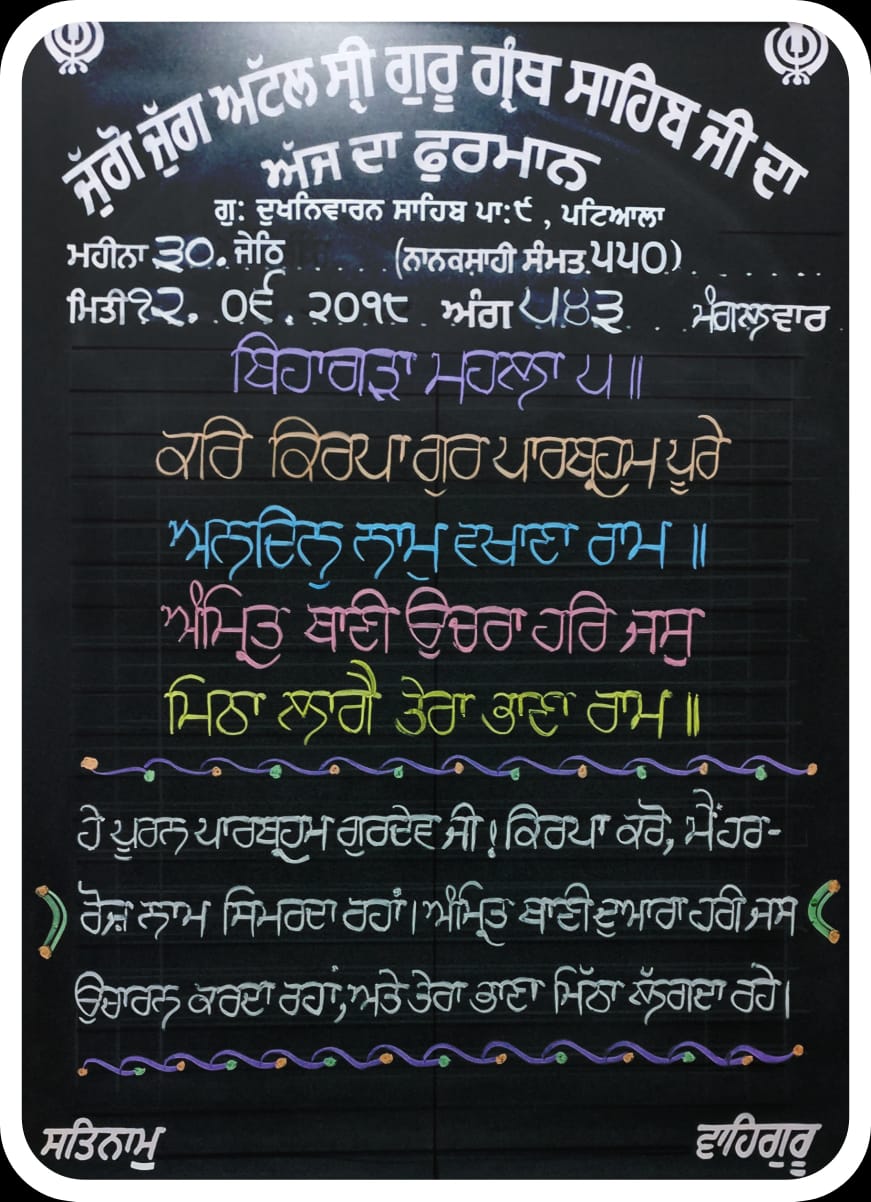 ਜੁੱਗੋ ਜੁੱਗ ਅੱਟਲ ਸ੍ਰੀ ਗੁਰੂ ਗ੍ਰੰਥ ਸਾਹਿਬ ਜੀ ਦਾ
ਅੱਜ ਦਾ ਫੁਰਮਾਨ
ਗੁ: ਦੁਖਨਿਵਾਰਨ ਸਾਹਿਬ ਪਾ:੯ , ਪਟਿਆਲਾ
ਮਹੀਨਾ ੩੦. ਜੇਠਿ (ਨਾਨਕਸ਼ਾਹੀ ਸੰਮਤ ੫੫੦)
ਮਿਤੀ ੧੨. ੦੬. ੨੦੧੮ ਅੰਗ ੫੪੩ ਮੰਗਲਵਾਰ
ਬਿਹਾਗੜਾ ਮਹਲਾ ੫ ॥
ਕਰਿ ਕਿਰਪਾ ਗੁਰ ਪਾਰਬ੍ਰਹਮ ਪੂਰੇ
ਅਨਦਿਨੁ ਨਾਮੁ ਵਖਾਣਾ ਰਾਮ ॥
ਅੰਮ੍ਰਿਤ ਬਾਣੀ ਉਚਰਾ ਹਰਿ ਜਸੁ
ਮਿਠਾ ਲਾਗੈ ਤੇਰਾ ਭਾਣਾ ਰਾਮ ॥
ਹੇ ਪੂਰਨ ਪਾਰਬ੍ਰਹਮ ਗੁਰਦੇਵ ਜੀ ! ਕਿਰਪਾ ਕਰੋ, ਮੈਂ ਹਰ-
ਰੋਜ਼ ਨਾਮ ਸਿਮਰਦਾ ਰਹਾਂ। ਅੰਮ੍ਰਿਤ ਬਾਣੀ ਦੁਆਰਾ ਹਰੀ ਜਸ
ਉਚਾਰਨ ਕਰਦਾ ਰਹਾਂ, ਅਤੇ ਤੇਰਾ ਭਾਣਾ ਮਿੱਠਾ ਲੱਗਦਾ ਰਹੇ।
ਸਤਿਨਾਮੁ ਵਾਹਿਗੁਰੂ